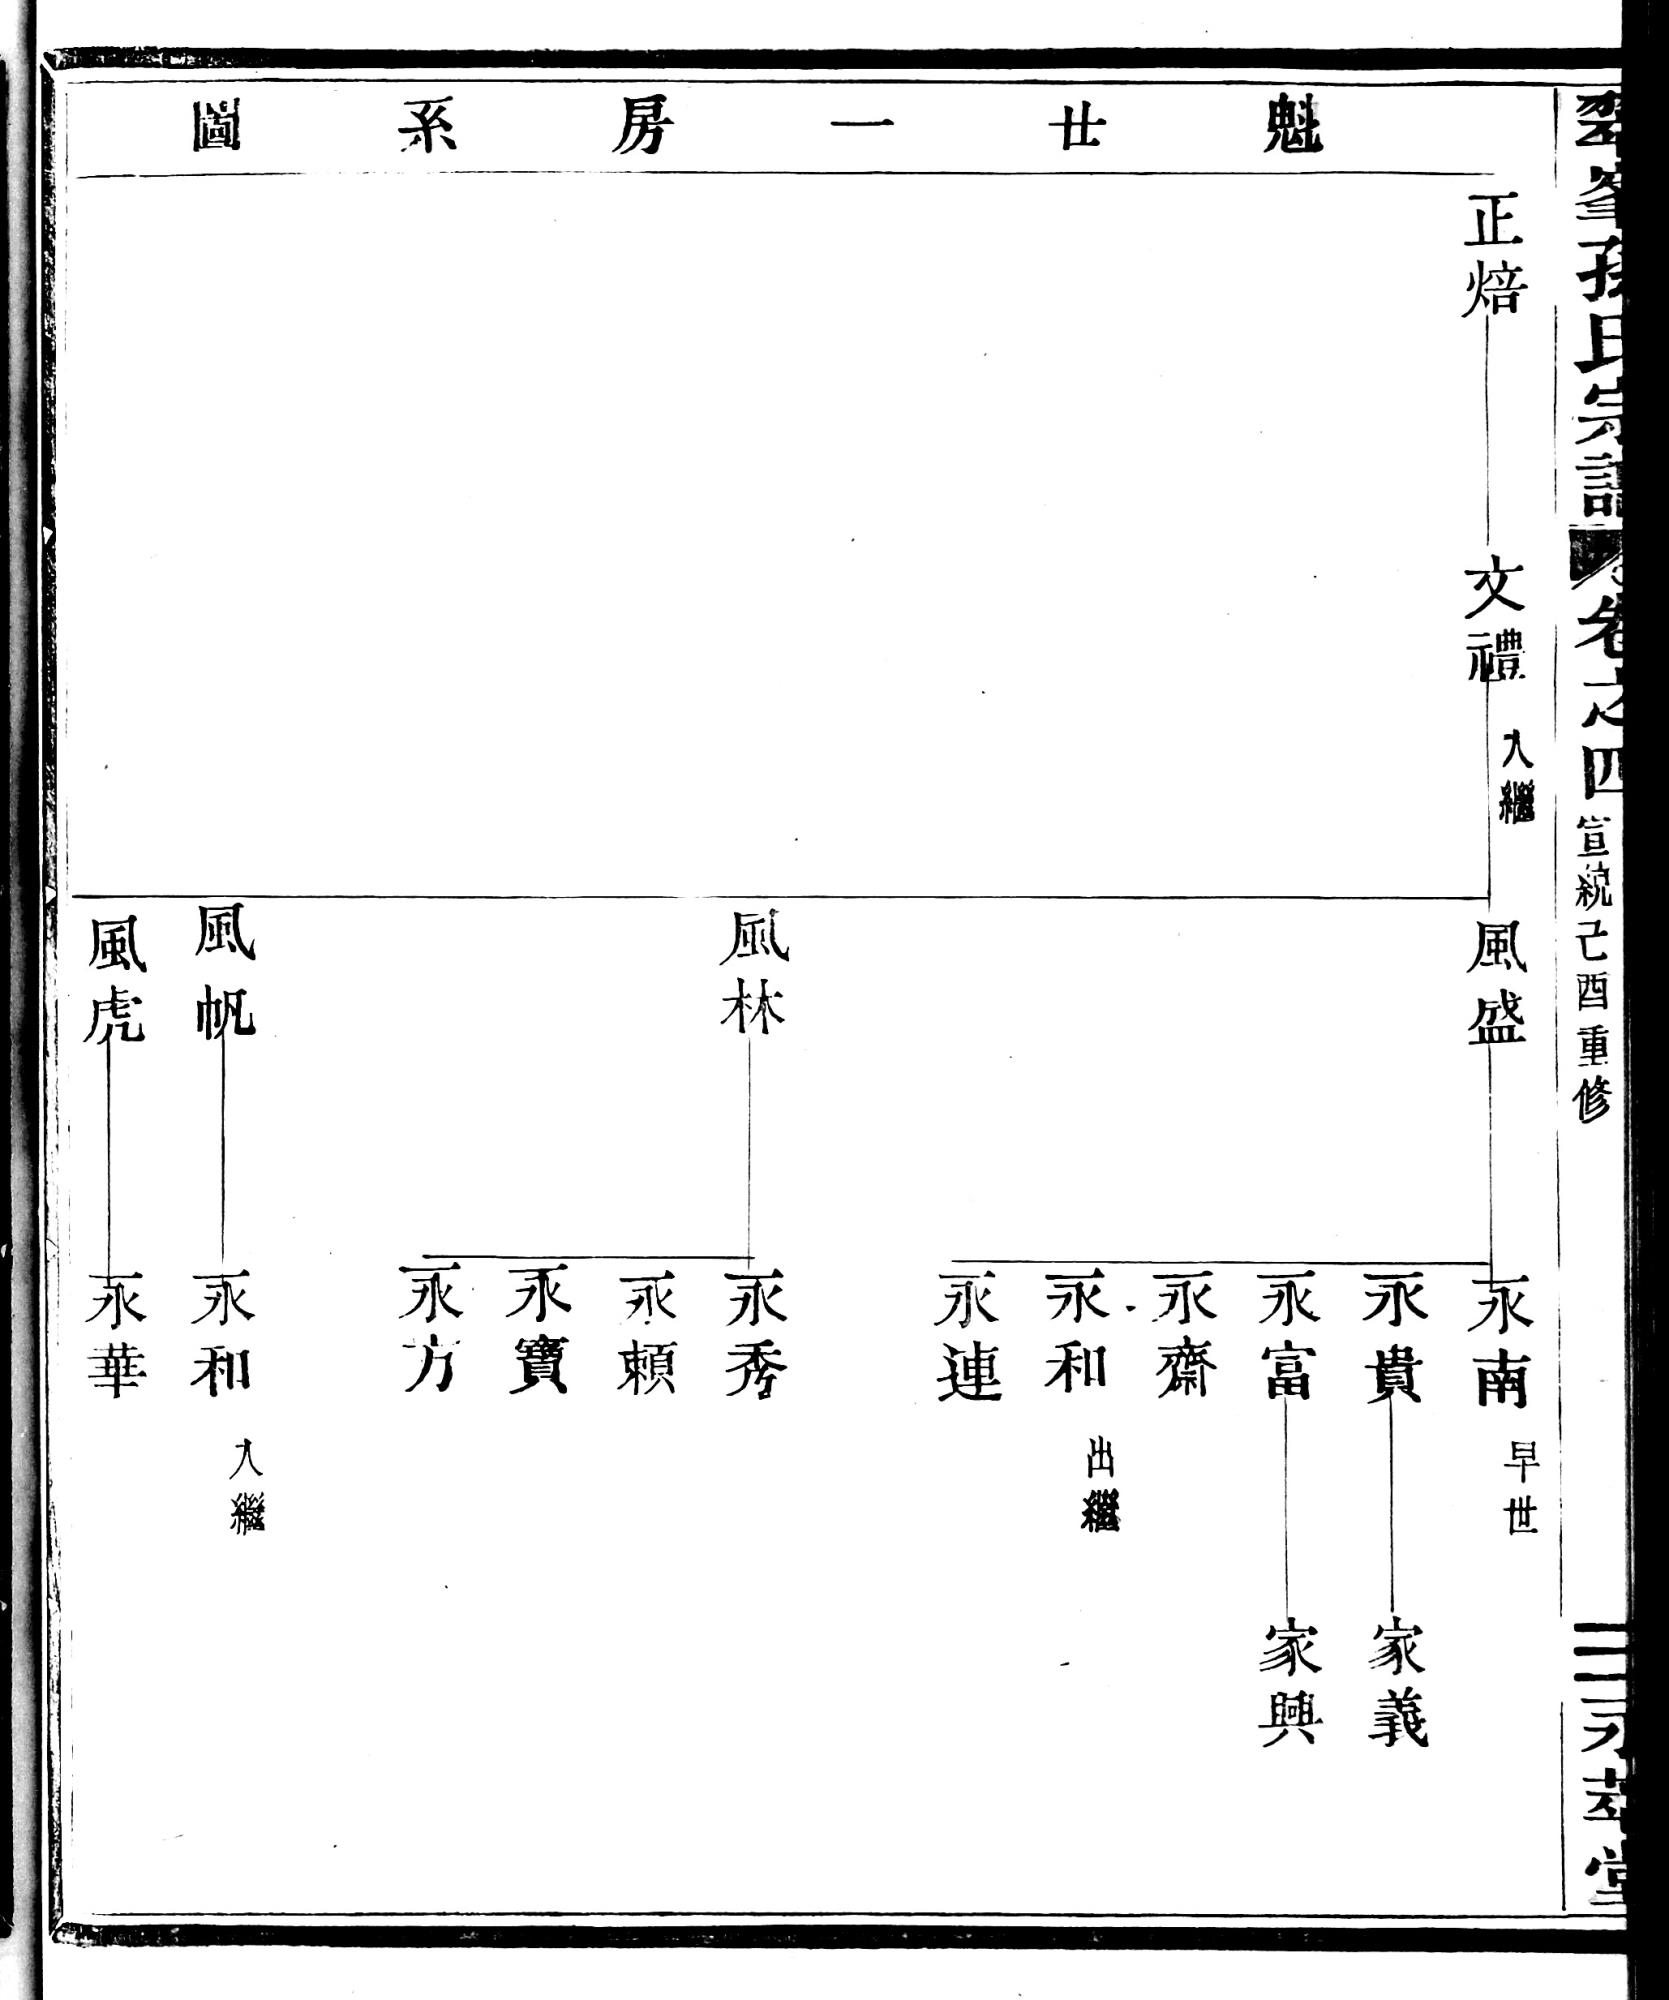 翠峯孫氏宗譜 卷之四 宣統己酉重修 二 永萃堂
魁廿一房系圖
正焙
文禮 入繼
風盛
風林
風帆
風虎
永南 早世
永貴
永富
永齋
永和 出繼
永連
永秀
永賴
永寶
永方
永和 入繼
永華
家義
家興